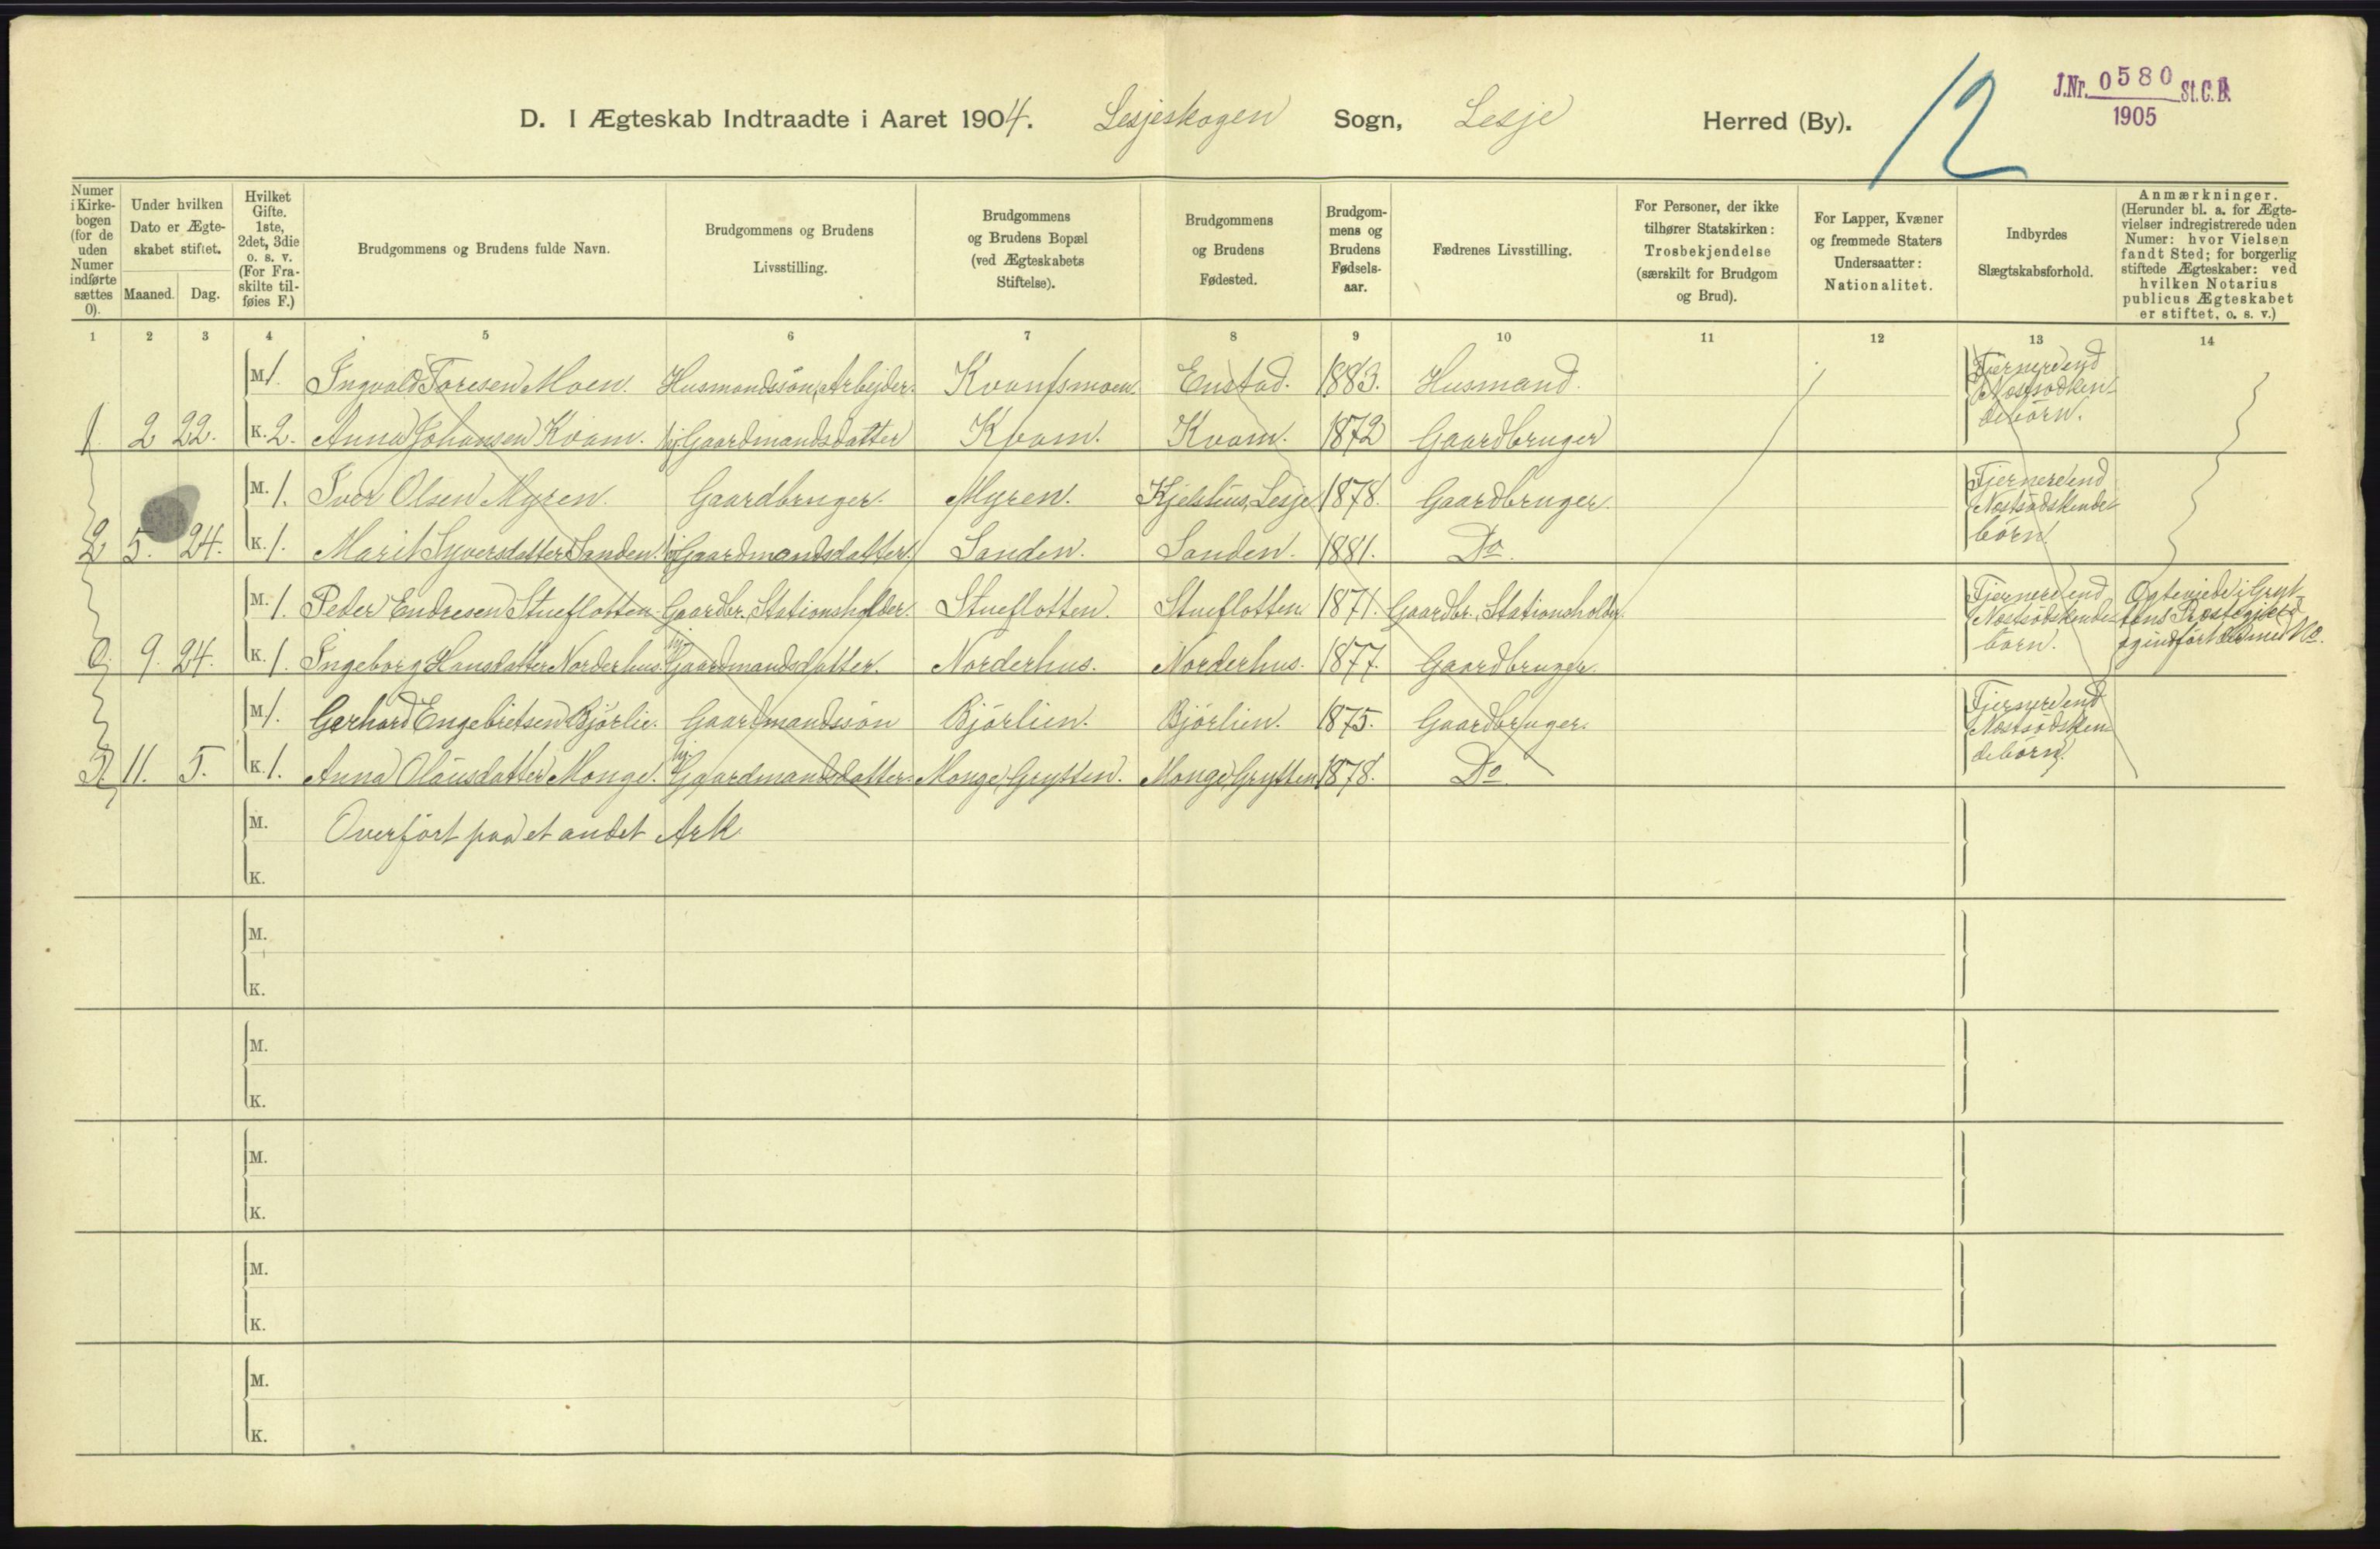 D. I Ægteskab Indtraadte i Aaret 1904. Lesjeskogen Sogn, Lesje Herred (By).
12
J.Nr. 0580 St.C.B.
1905
Numer i Kirkebogen (for de uden Numer indførte sættes 0).
Under hvilken Dato er Ægteskabet stiftet.
Maaned. Dag.
Hvilket Gifte. 1ste, 2det, 3die o. s. v. (For Fraskilte tilføies F.)
Brudgommens og Brudens fulde Navn.
Brudgommens og Brudens Livsstilling.
Brudgommens og Brudens Bopæl (ved Ægteskabets Stiftelse).
Brudgommens og Brudens Fødested.
Brudgommens og Brudens Fødselsaar.
Fædrenes Livsstilling.
For Personer, der ikke tilhører Statskirken: Trosbekjendelse (særskilt for Brudgom og Brud).
For Lapper, Kvæner og fremmede Staters Undersaatter: Nationalitet.
Indbyrdes Slægtskabsforhold.
Anmærkninger. (Herunder bl. a. for Ægtevielser indregistrerede uden Numer: hvor Vielsen fandt Sted; for borgerlig stiftede Ægteskaber: ved hvilken Notarius publicus Ægteskabet er stiftet, o. s. v.)
1 2 3 4 5 6 7 8 9 10 11 12 13 14
M 1. Ingvald Toresen Moen. Husmandssön, Arbejder. Enstad. 1883. Husmand. Fjernere end Næstsödskendebörn.
1. 2 22. K. 2. Anna Johansen Kvam. Gaardmandsdatter Kvam. Kvam. 1872 Gaardbruger
M. 1. Iver Olsen Myren. Gaardbruger. Myren. Kjelshus, Lesje 1878. Gaardbruger. Fjernere end Næstsödskendebörn.
2 5. 24. K. 1. Marit Syversdatter Sanden. Gaardmandsdatter. Sanden. Sanden. 1881. Do.
M. 1. Peder Endresen Stueflotten Gaardbr., Stationsholder. Stueflotten. Stueflotten 1871. Gaardbr., Stationsholder. Fjernere end Næstsödskendebörn. Ogteviede i Gryttens Præstegjeld
0. 9. 24. K. 1. Ingeborg Hansdatter Norderhus. Gaardmandsdatter. Norderhus. Norderhus. 1877. Gaardbruger. og indfört
M 1. Gerhard Engebretsen Bjórlie. Gaardmandssön Bjórlien. Bjórlien. 1875. Gaardbruger. Fjernere end Næstsödskendebörn.
3. 11. 5. K. 1. Anna Olausdatter Monge. Gaardmandsdatter. Monge, Grytten. Monge, Grytten 1878. Do.
M. Overfört paa et andet Ark
K.
M.
K.
M.
K.
M.
K.
M.
K.
M.
K.